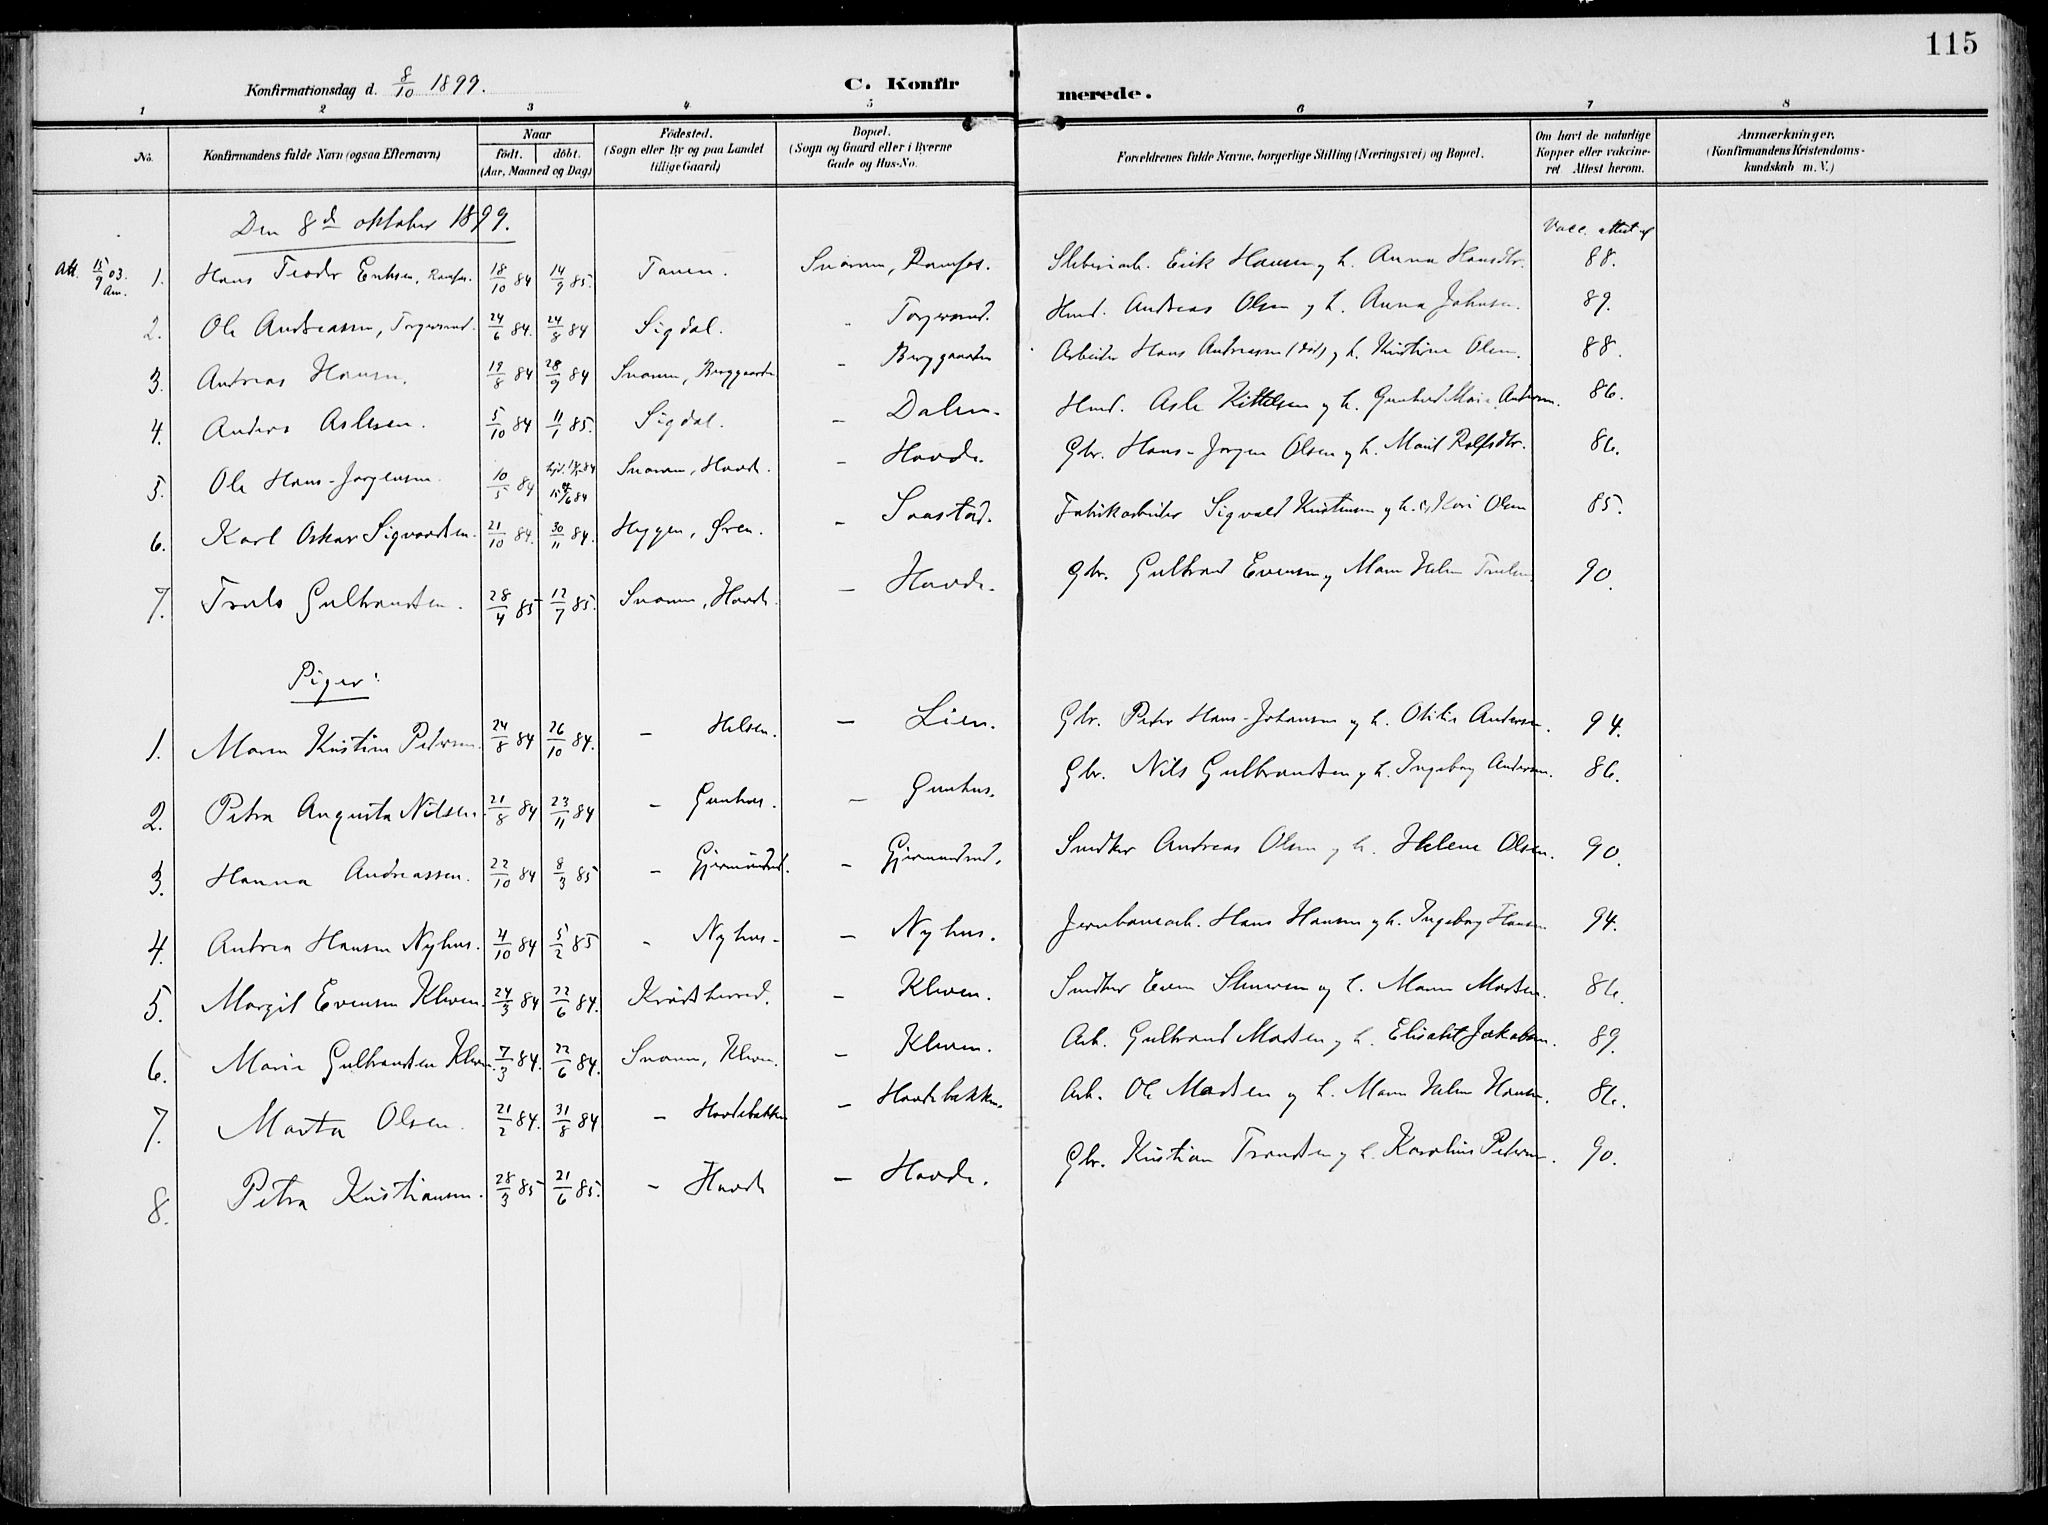 115
Konfirmationsdag d. 8/10 1899. C. Konfirmerede.
1 2 3 4 5 6 7 8
No. Konfirmandens fulde Navn (ogsaa Efternavn) Naar födt. döbt. (Aar, Maaned og Dag) Födested. (Sogn eller By og paa Landet tillige Gaard) Bopæl. (Sogn og Gaard eller i Byerne Gade og Hus-No. Forældrenes fulde Navne, borgerlige Stilling (Næringsvei) og Bopæl. Om havt de naturlige Kopper eller vakcineret Attest herom. Anmærkninger. (Konfirmandens Kristendomskundskab m. V.)
Den 8d oktober 1899. Vacc. attest af
Att. 15/9 03. 1. Hans Teodor Eriksen, 18/10 84 14/9 85. Snarum, Erik Hansen og h. Anna Hansdtr. 88.
2. Ole Andreassen, Torgersrud. 24/6 84. 24/8 84 Sigdal. Torgersrud. Hmd. Andreas Olsen og h. Anna Johnsen. 89.
3. Andreas Hansen. 19/8 84 28/9 84 Snarum, Berggaarden - Berggaarden Arbeider Hans Andreassen (död) og h. Kristine Olsen. 88.
4. Anders Aslesen. 5/10 84 11/1 85. Sigdal. - Dalen. Hmd. Asle Kittelsen og h. Gunhild Marie Andersen. 86.
5. Ole Hans-Jørgensen. 10/5 84 15/6 84 Snarum, Hovde. - Hovde. Gbr. Hans-Jørgen Olsen og h. Marit Rolfsdtr. 86.
6. Karl Oskar Sigvardsen. 21/10 84. 30/11 84. Hyggen, Øren. - Saastad. Fabrikarbeider Sigvald Kristensen og h. Kari Olsen 85.
7. Truls Gulbrandsen. 28/4 85 12/7 85. Snarum, Hovde. - Hovde. Gbr. Gulbrand Evensen og Maren Helene Trulsen 90.
Piger:
1. Maren Kristine Petersen. 24/8 84 26/10 84. - Helsen. - Lien. Gbr. Peter Hans-Johansen og h. Otilie Andersen. 94.
2. Petra Augusta Nilsen. 21/8 84 23/11 84 - Gunhus. - Gunhus. Gbr. Nils Gulbrandsen og h. Ingeborg Andersen. 86.
3. Hanna Andreassen. 22/10 84 8/3 85 - Gjermundrud. - Gjermundrud. Smdker Andreas Olsen og h. Helene Olsen. 90.
4. Andrea Hansen Nyhus. 4/10 84 5/2 85 - Nyhus - - Nyhus. Jernbanearb. Hans Hansen og h. Ingeborg Hansen 94.
5. Margit Evensen Kleven. 24/3 84 22/6 84. Krödsherred. - Kleven. Smdker Even og h. Maren Madsen. 86.
6. Marie Gulbrandsen Kleven. 7/3 84. 22/6 84. Snarum, Kleven. - Kleven. Arb. Gulbrand Madsen og h. Elisabet Jakobsen. 89.
7. Marta Olsen. 21/2 84. 31/8 84 - Hovdebakken - Hovdebakken. Arb. Ole Madsen og h. Maren Helene Hansen. 86.
8. Petra Kristiansen. 28/3 85 21/6 85. - Hovde - Hovde. Gbr. Kristian Trondsen og h. Karoline Petersen. 90.